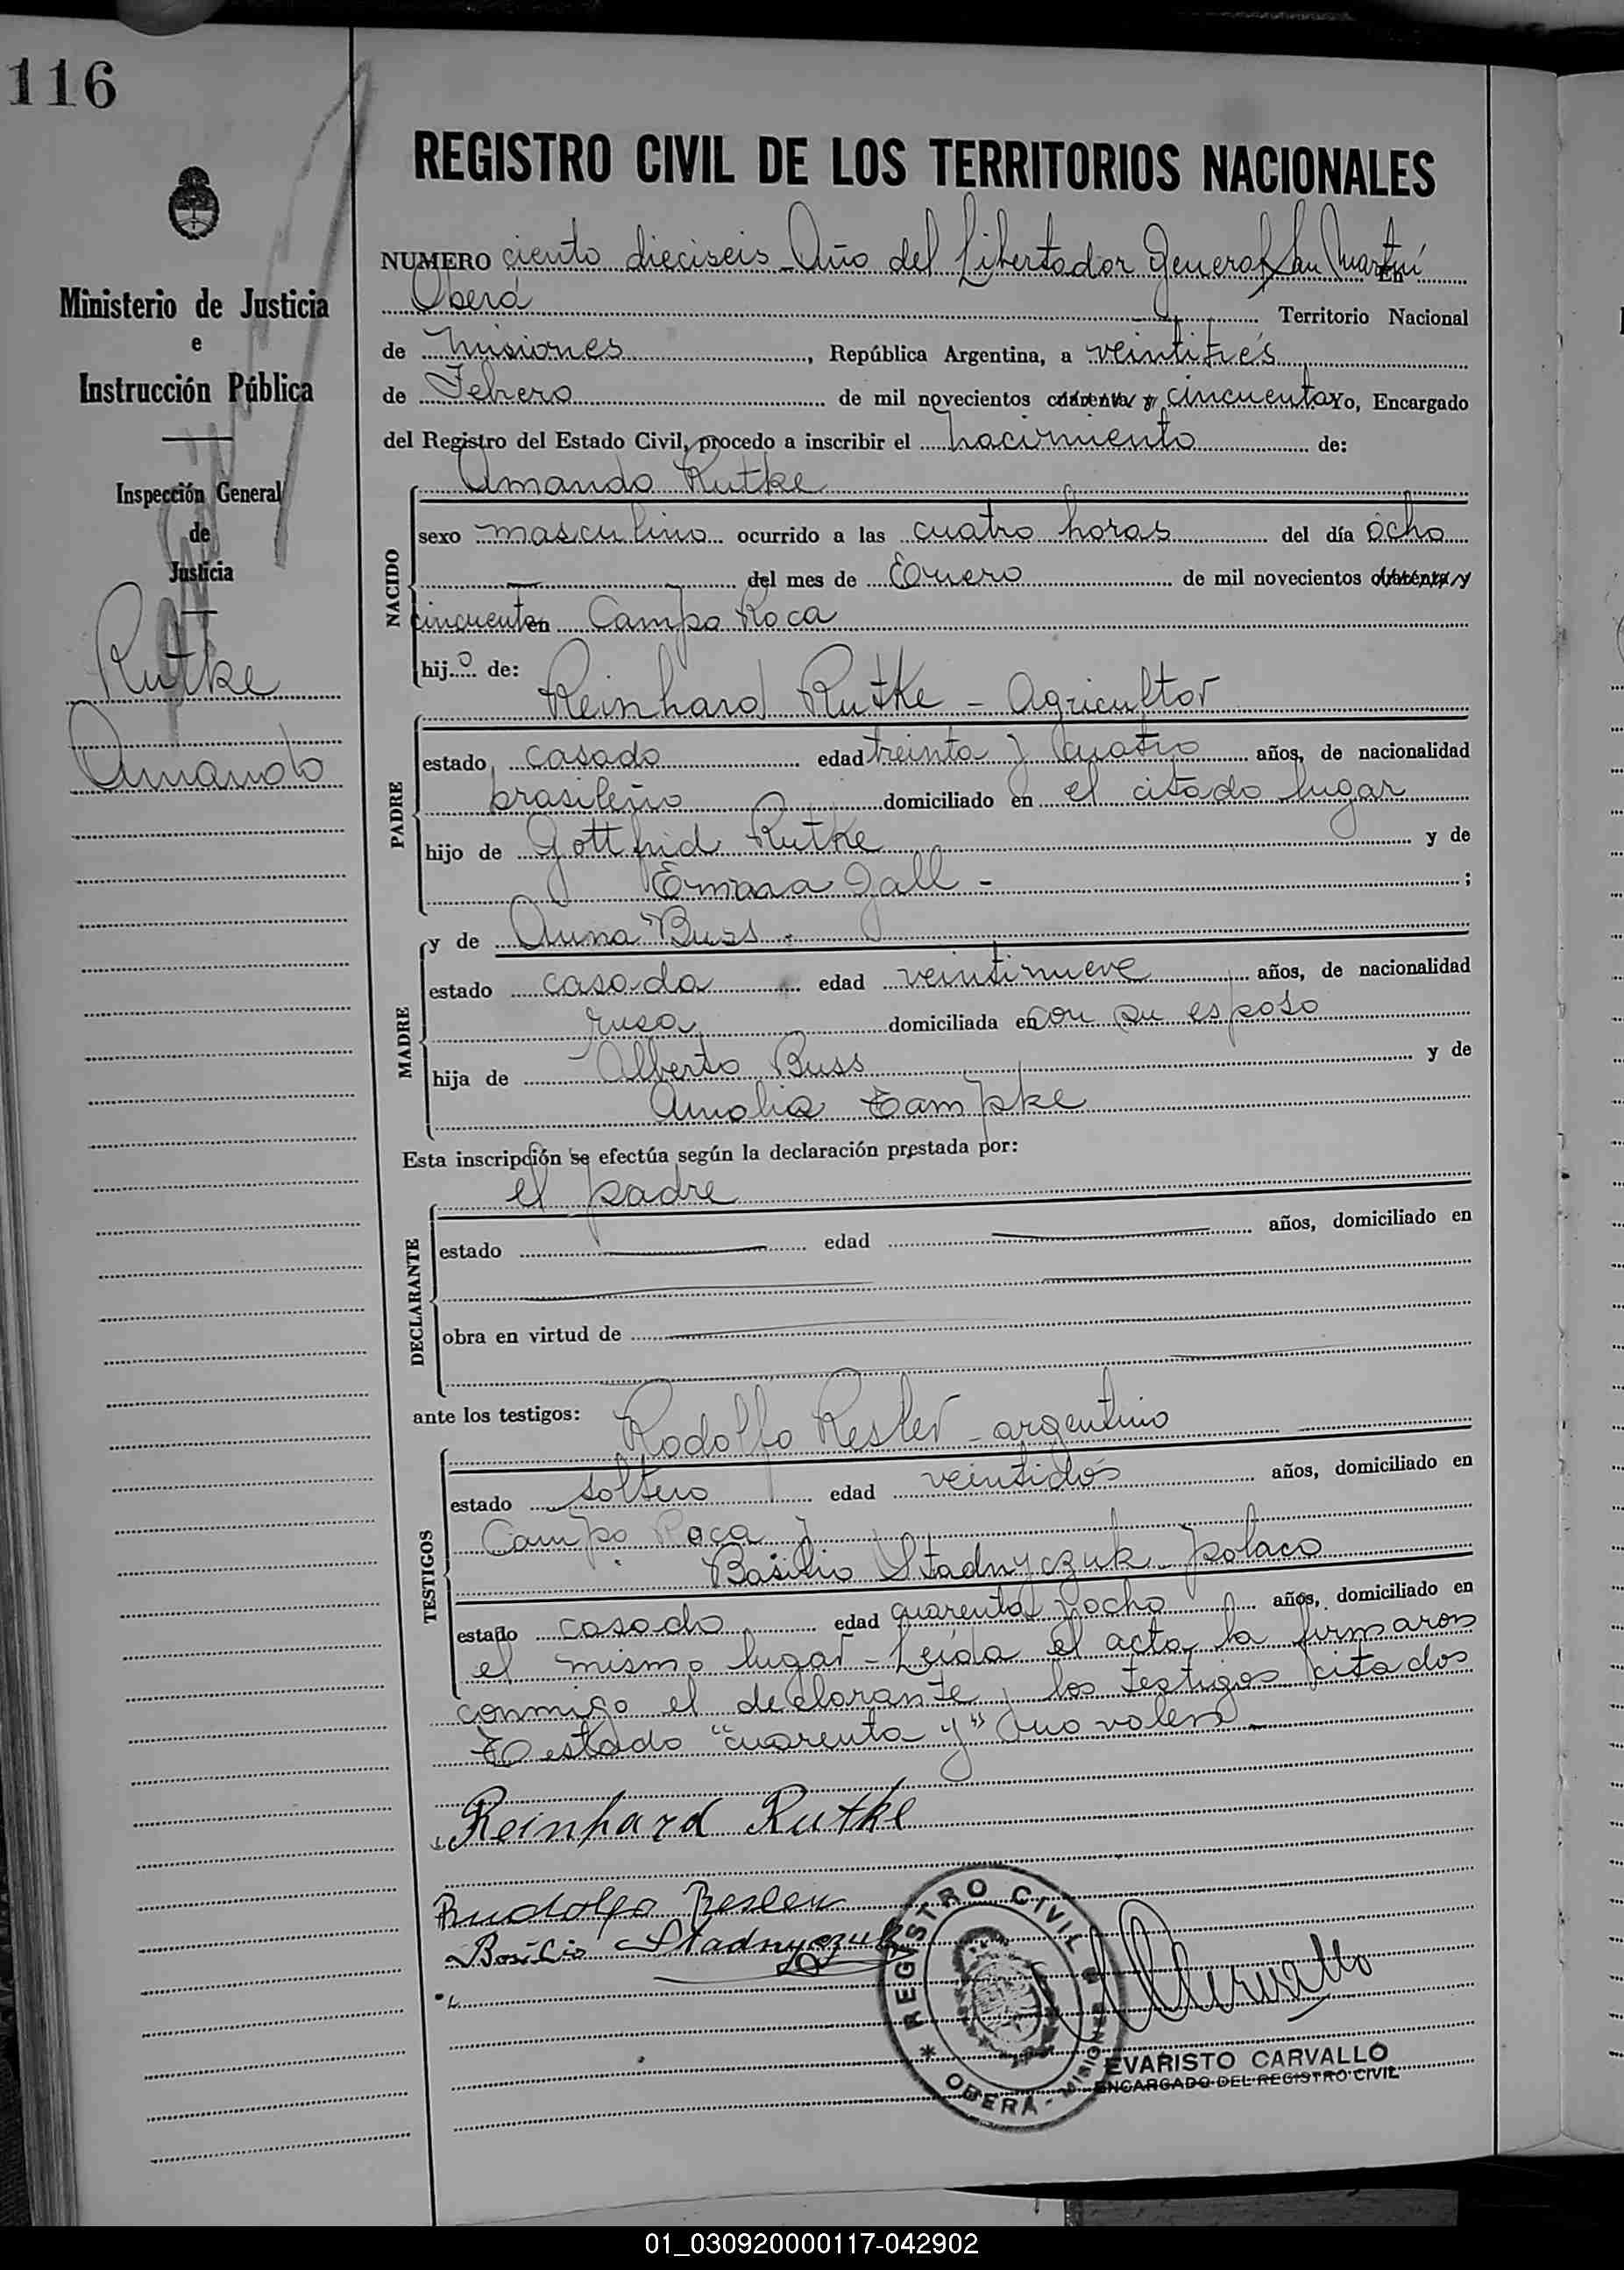 116
REGISTRO CIVIL DE LOS TERRITORIOS NACIONALES
Ministerio de Justicia
e
Instrucción Pública
Inspección General
de
Justicia
Rutke
Amando
NUMERO ciento dieciseis - Año del Libertador General San Martín En
Oberá Territorio Nacional
de Misiones, República Argentina, a veintitrés
de Febrero de mil novecientos cuarenta y cincuenta Yo, Encargado
del Registro del Estado Civil, procedo a inscribir el nacimiento de:
Amando Rutke
NACIDO
sexo masculino ocurrido a las cuatro horas del día ocho
— del mes de Enero de mil novecientos cuarenta y
cincuenta en Campo Roca
hijo de:
Reinhard Rutke - Agricultor
PADRE
estado casado edad treinta y cuatro años, de nacionalidad
brasileño domiciliado en el citado lugar
hijo de Gottfrid Rutke y de
Emma Jall - ;
MADRE
y de Anna Buss -
estado casada edad veintinueve años, de nacionalidad
rusa domiciliada en con su esposo
hija de Alberto Buss y de
Amalia Tampke
Esta inscripción se efectúa según la declaración prestada por:
el padre
DECLARANTE
estado — edad — años, domiciliado en
obra en virtud de
ante los testigos: Rodolfo Resler - argentino
TESTIGOS
estado soltero edad veintidós años, domiciliado en
Campo Roca y
Basilio Stadnyczuk - polaco
estado casado edad cuarenta y ocho años, domiciliado en
el mismo lugar - Leída el acta la firmaron
conmigo el declarante y los testigos citados
Testado "cuarenta y" no valen -
Reinhard Rutke
Rudolfo Resler
Basilio Stadnyczuk
REGISTRO CIVIL
* OBERÁ - MISIONES *
Carvallo
EVARISTO CARVALLO
ENCARGADO DEL REGISTRO CIVIL
01_030920000117-042902